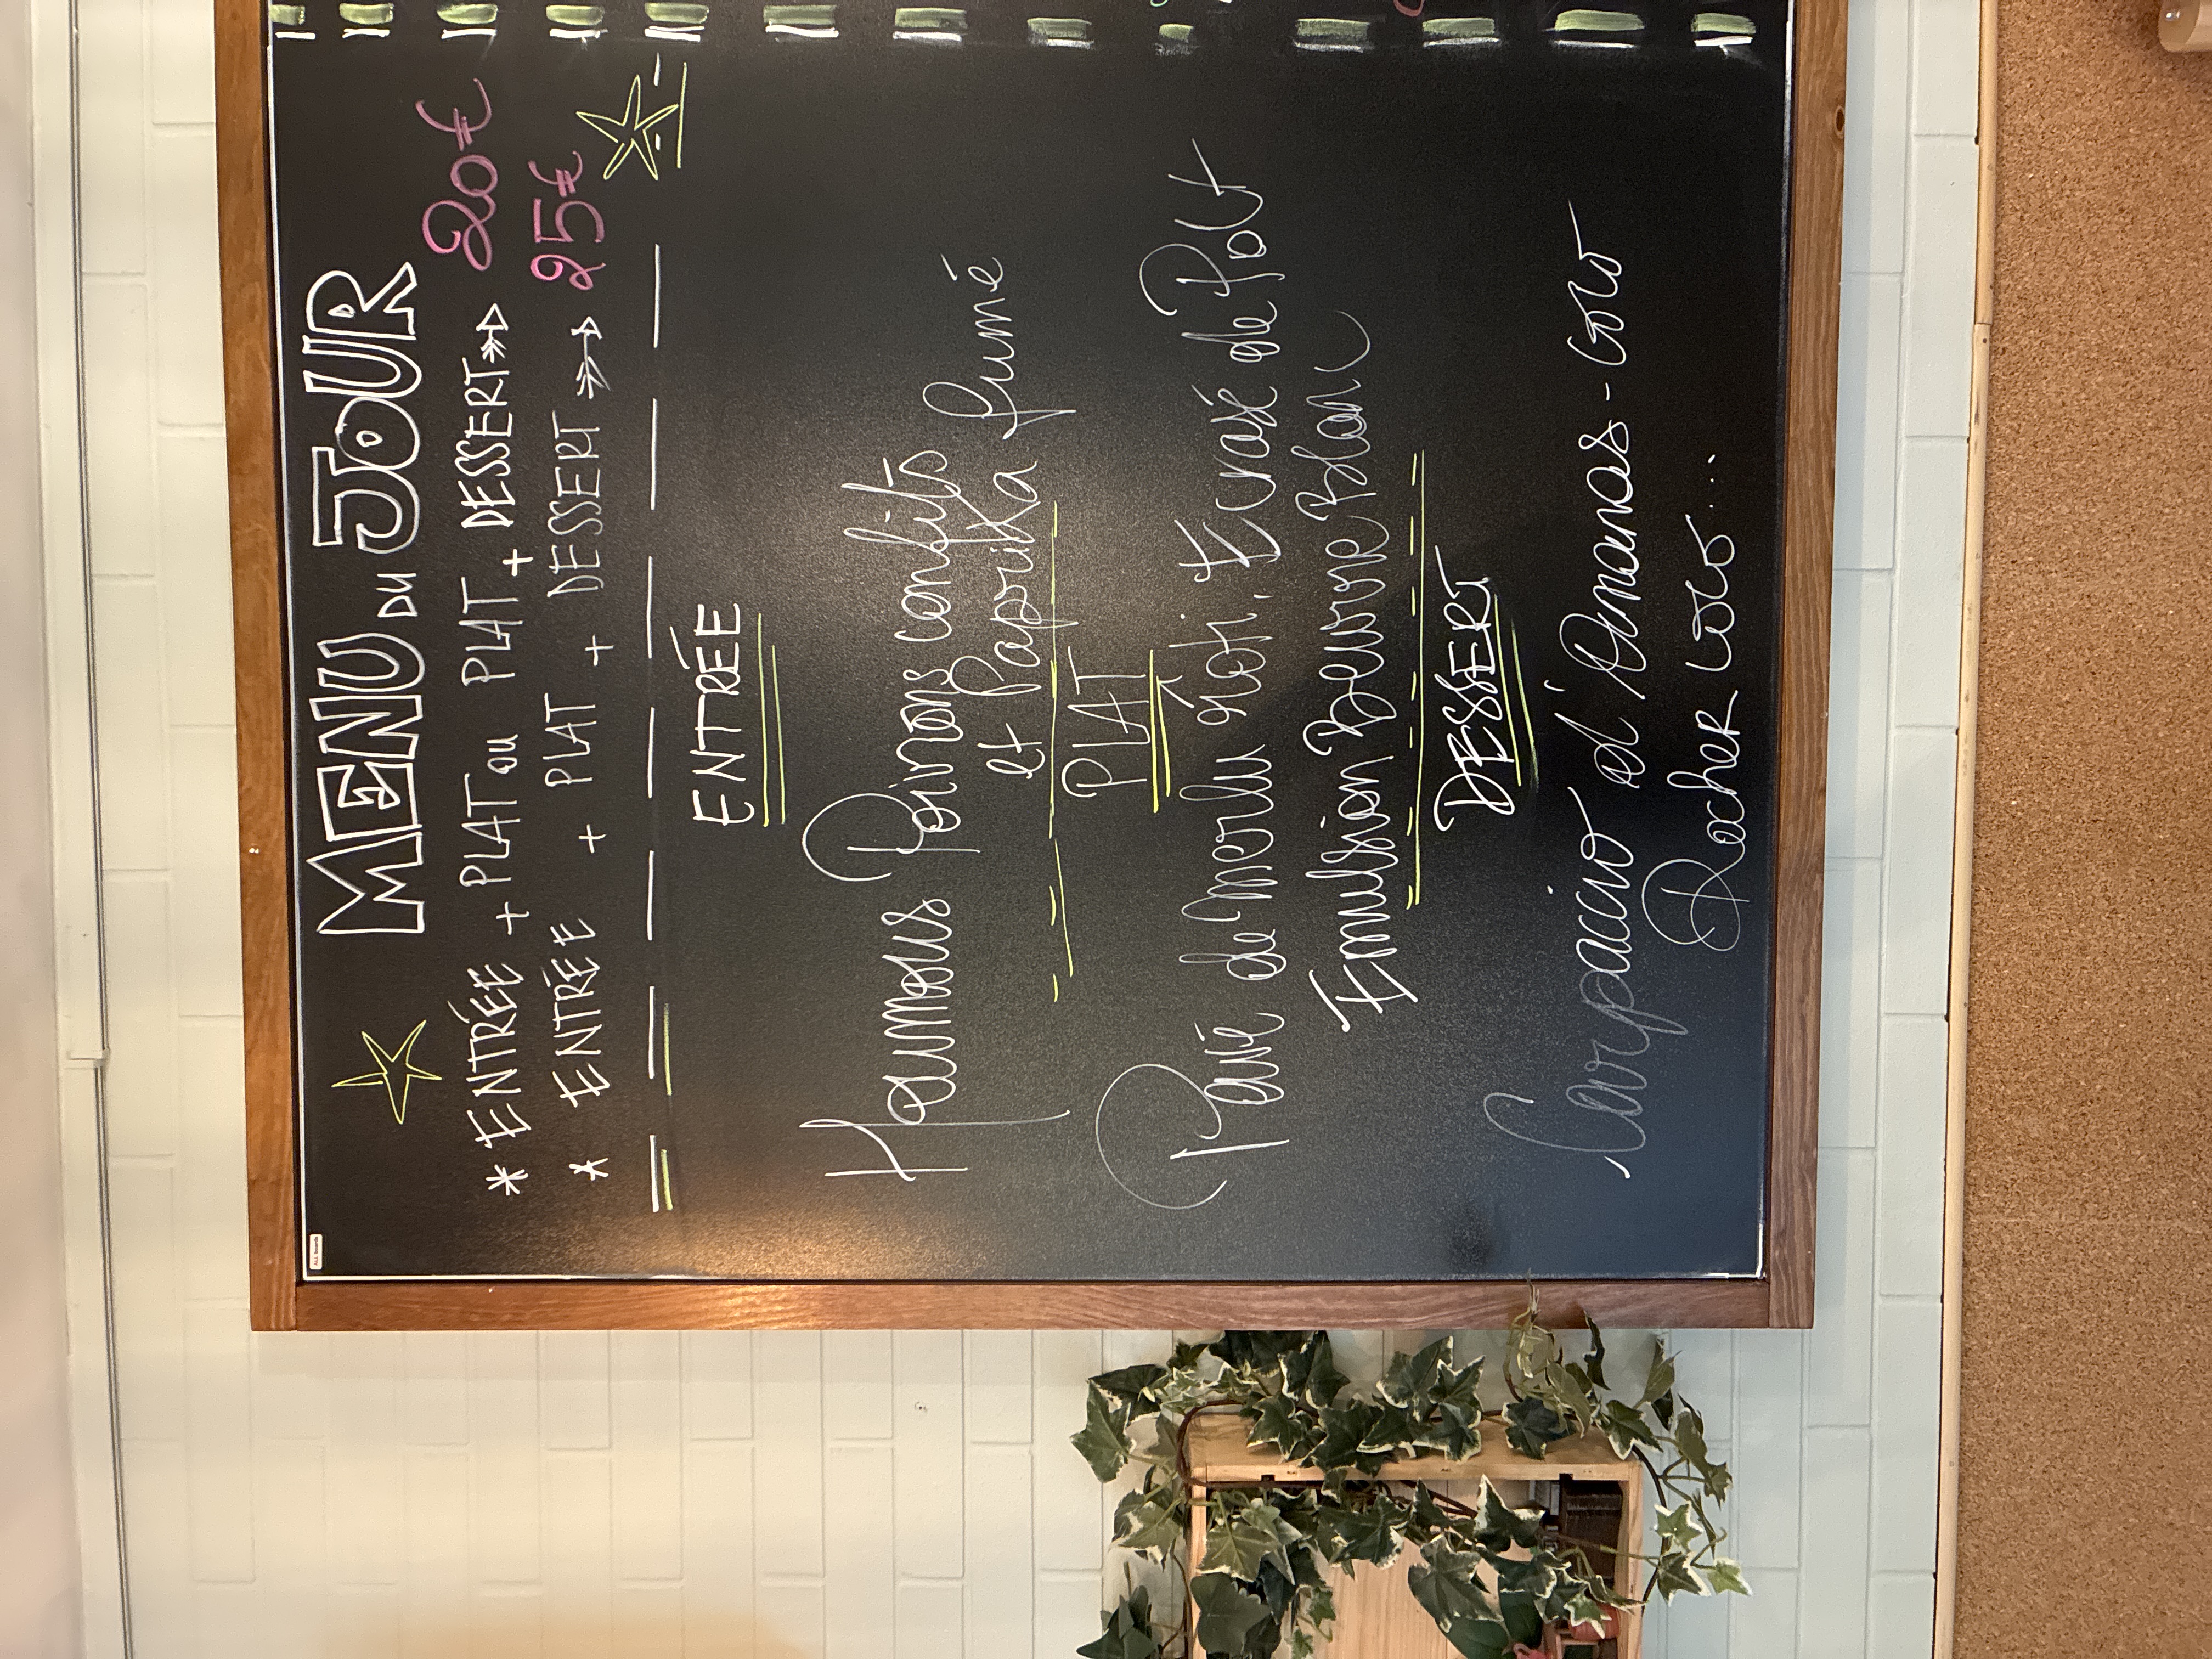 MENU DU JOUR
* ENTRÉE + PLAT ou PLAT + DESSERT 20€
* ENTRÉE + PLAT + DESSERT 25€
ENTRÉE
Houmous Poivrons confits
et Paprika fumé
PLAT
Pavé de merlu rôti, Ecrasé de PdT
Emulsion Beurre Blanc
DESSERT
Carpaccio d'Ananas-Coco
Rocher Coco...